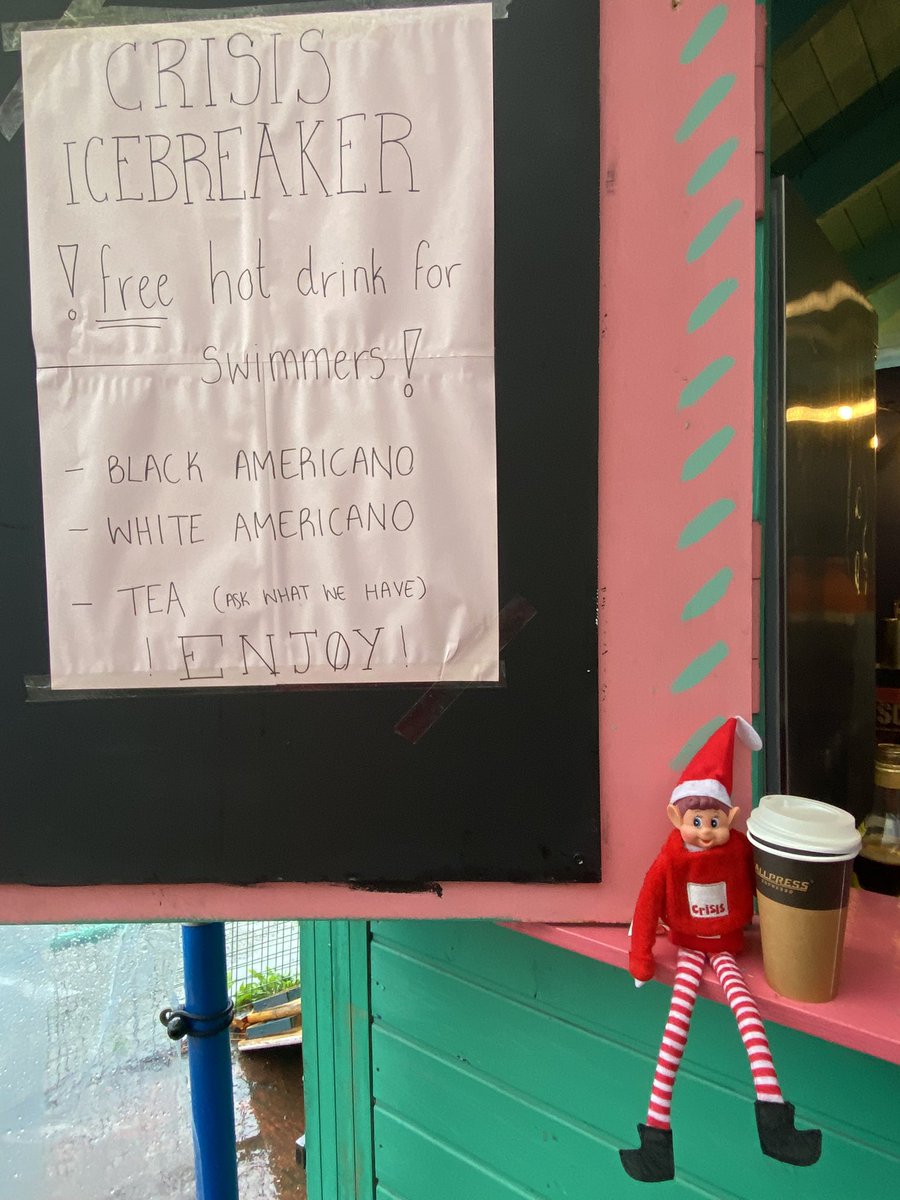 CRISIS
ICEBREAKER
! free hot drink for
swimmers!
- BLACK AMERICANO
- WHITE AMERICANO
- TEA (ASK WHAT WE HAVE)
! ENJØY!
CRISIS
ALLPRESS
ESPRESSO